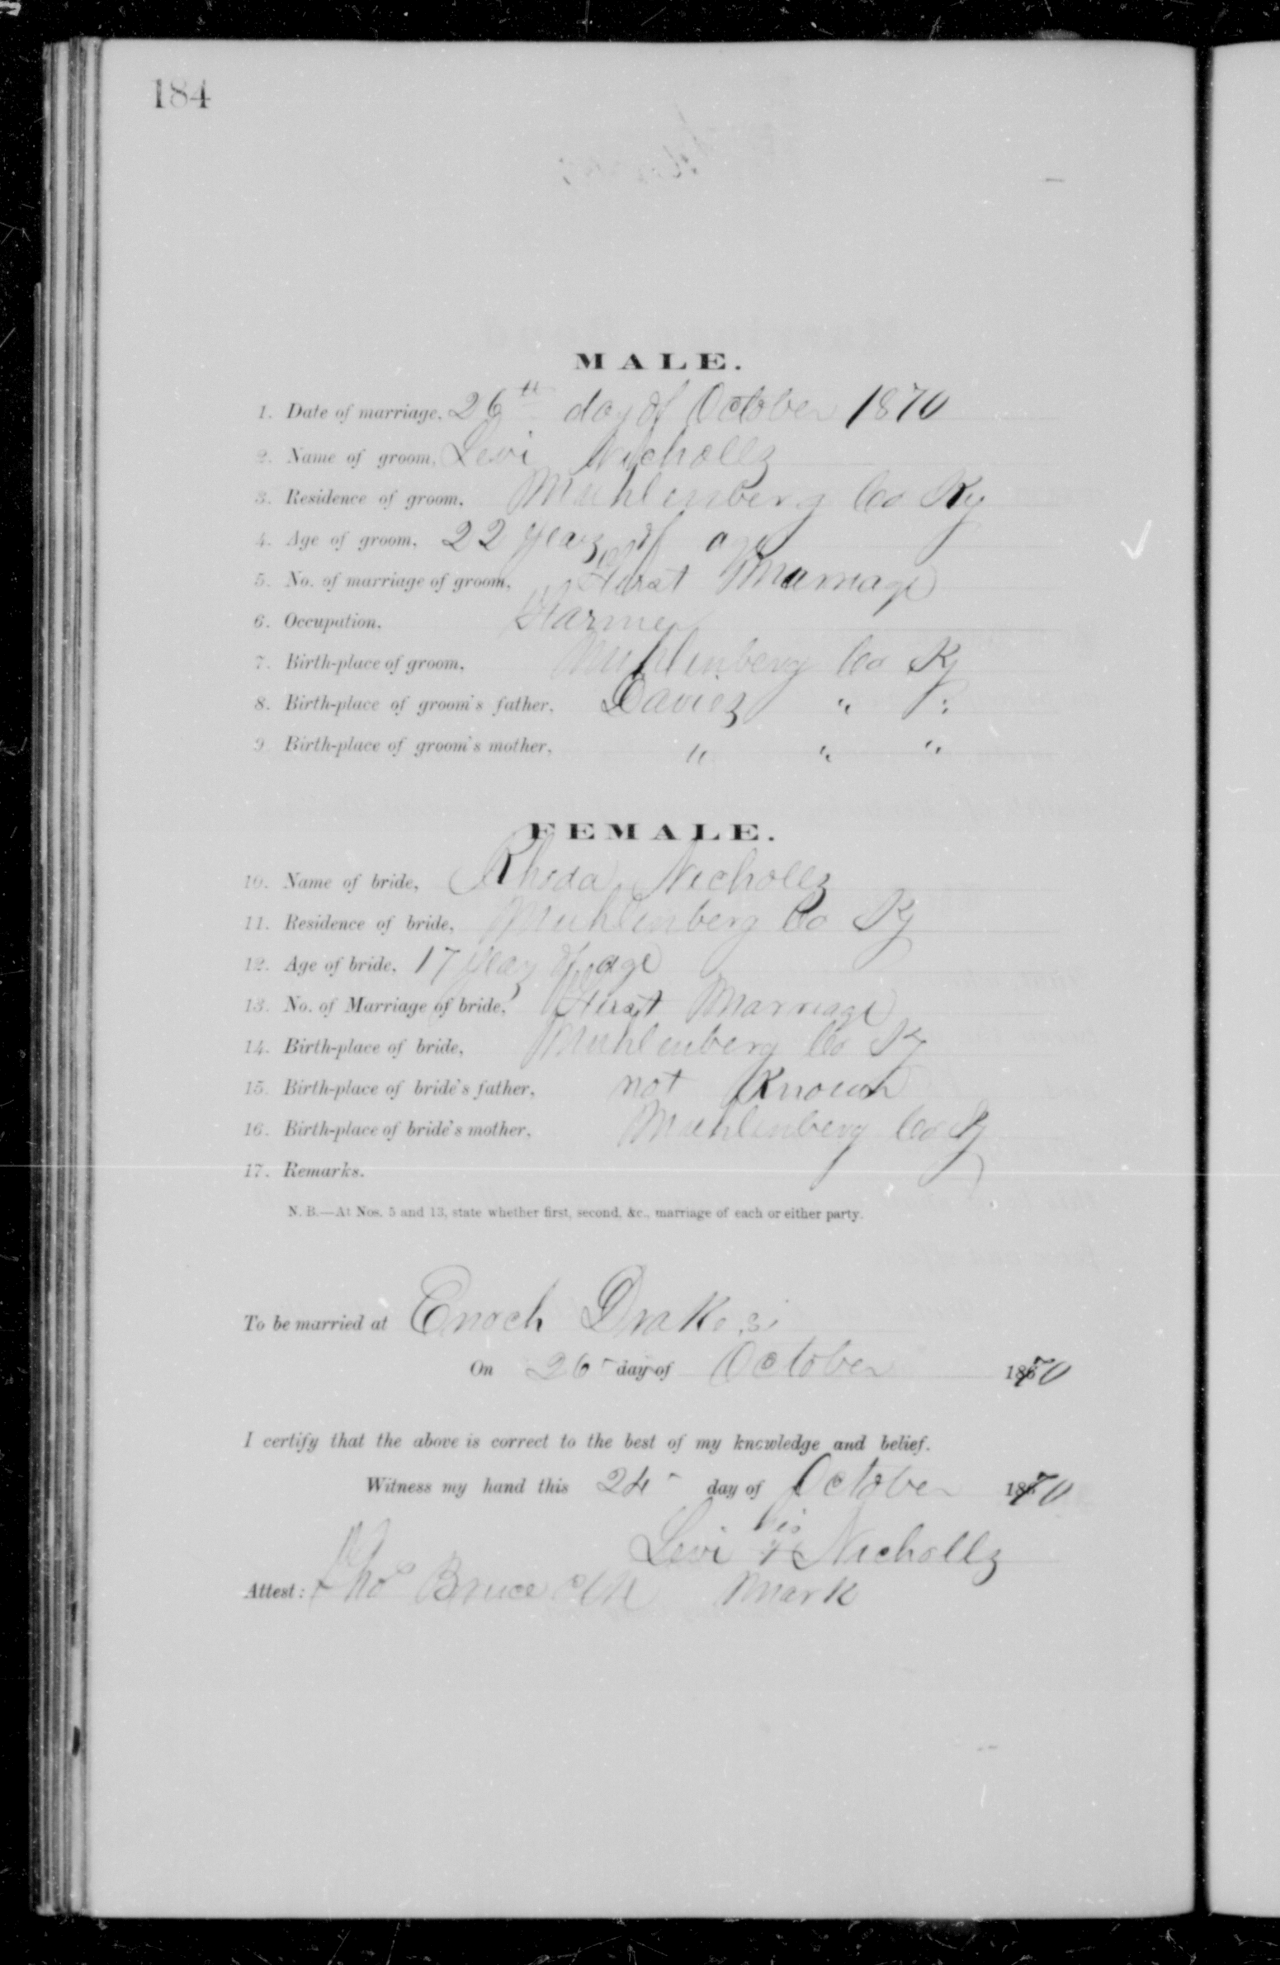 184
MALE.
1. Date of marriage, 26th day of October 1870
2. Name of groom, Levi Nicholls
3. Residence of groom, Muhlenberg Co Ky
4. Age of groom, 22 years of age
5. No. of marriage of groom, First Marriage
6. Occupation, Farmer
7. Birth-place of groom, Muhlenberg Co Ky
8. Birth-place of groom's father, Daviess " "
9. Birth-place of groom's mother, " " "
FEMALE.
10. Name of bride, Rhoda Nicholls
11. Residence of bride, Muhlenberg Co Ky
12. Age of bride, 17 years of age
13. No. of Marriage of bride, First Marriage
14. Birth-place of bride, Muhlenberg Co Ky
15. Birth-place of bride's father, not Known
16. Birth-place of bride's mother, Muhlenberg Co Ky
17. Remarks.
N. B.—At Nos. 5 and 13, state whether first, second, &c., marriage of each or either party.
To be married at Enoch Drakes
On 26 day of October 1870
I certify that the above is correct to the best of my knowledge and belief.
Witness my hand this 24 day of October 1870
his
Levi x Nicholls
Attest: Thos Bruce clk mark